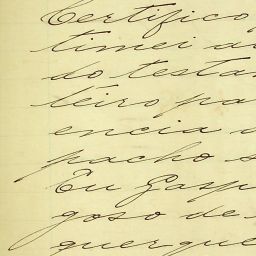 Certifico
timei a
do testa
teiro pa
encia d
pacho s
Eu Gasp
goso de
querque